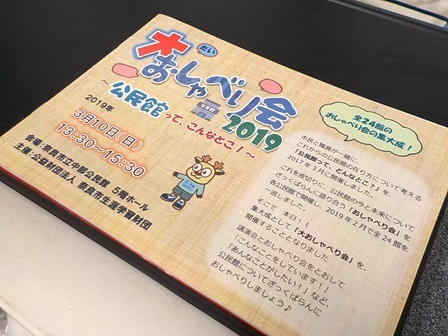 大おしゃべり会
だい
2019
～公民館って、こんなとこ！～
2019年
3月10日（日）
13:30～15:30
会場：奈良市立中部公民館 5階ホール
主催：公益財団法人 奈良市生涯学習財団
全24館の
おしゃべり会の集大成！
市民と職員が一緒に、
これからの公民館の在り方について考える
「公民館って、どんなとこ？」を
2017年3月に開催しました。
これを皮切りに、公民館の今と未来について
ざっくばらんに語り合う「おしゃべり会」を
各公民館で開催し、2019年2月で全24館を
一巡しました。
そこで 本日！！
集大成として「大おしゃべり会」を
開催することとなりました
講演会とおしゃべり会をとおして
「こんなことをしています！」
「あんなことがしたい！」など、
公民館についてざっくばらんに
おしゃべりしましょう♪